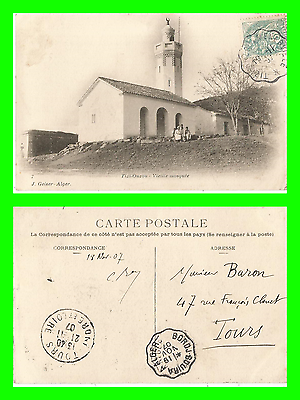 7
Tizi-Ouzou - Vieille mosquée
J. Geiser - Alger.
CARTE POSTALE
La Correspondance de ce côté n'est pas acceptée par tous les pays (Se renseigner à la poste)
CORRESPONDANCE
ADRESSE
15 Nov. 07
Monsieur Baron
47 rue François Clouet
Tours
TOURS
13 40
21-11
07
INDRE-ET-LOIRE